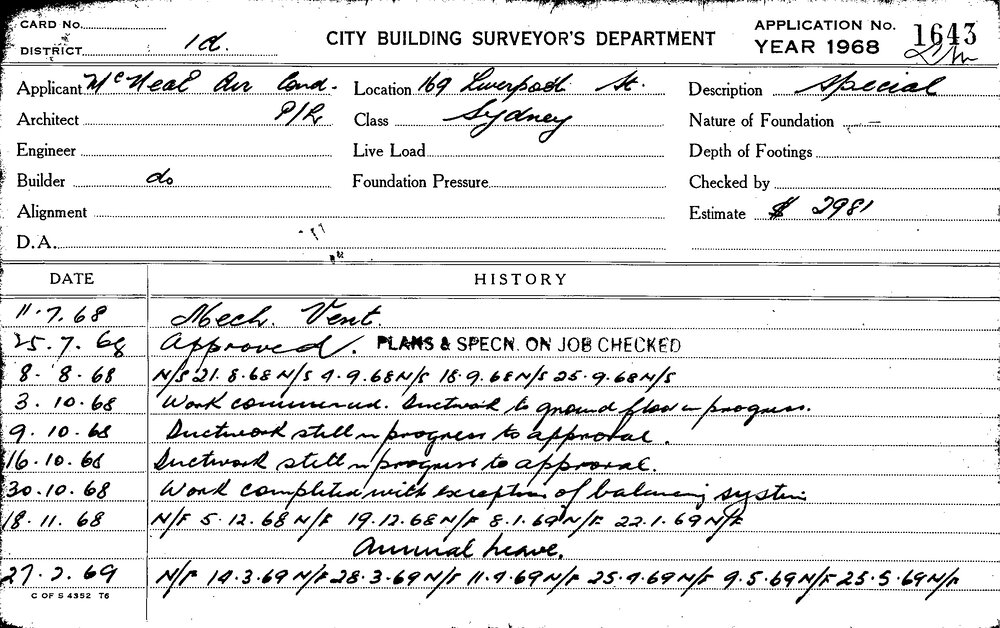 CARD No.
DISTRICT 1d.
CITY BUILDING SURVEYOR'S DEPARTMENT
APPLICATION No. 1643
YEAR 1968
Applicant McNeal Air Cond. P/L
Location 169 Liverpool St. Sydney
Description Special
Architect
Class
Nature of Foundation —
Engineer
Live Load
Depth of Footings
Builder do
Foundation Pressure
Checked by
Alignment
Estimate $ 2981
D.A.
DATE HISTORY
11.7.68 Mech. Vent.
25.7.68 Approved. PLANS & SPECN. ON JOB CHECKED
8.8.68 N/S 21.8.68 N/S 4.9.68 N/S 18.9.68 N/S 25.9.68 N/S
3.10.68 Work commenced. Ductwork to ground floor in progress.
9.10.68 Ductwork still in progress to approval.
16.10.68 Ductwork still in progress to approval.
30.10.68 Work completed with exception of balancing system
18.11.68 N/F 5.12.68 N/F 19.12.68 N/F 8.1.69 N/F 22.1.69 N/F
Annual leave.
27.2.69 N/F 14.3.69 N/F 28.3.69 N/F 11.4.69 N/F 25.4.69 N/F 9.5.69 N/F 25.5.69 N/F
C OF S 4352 T6